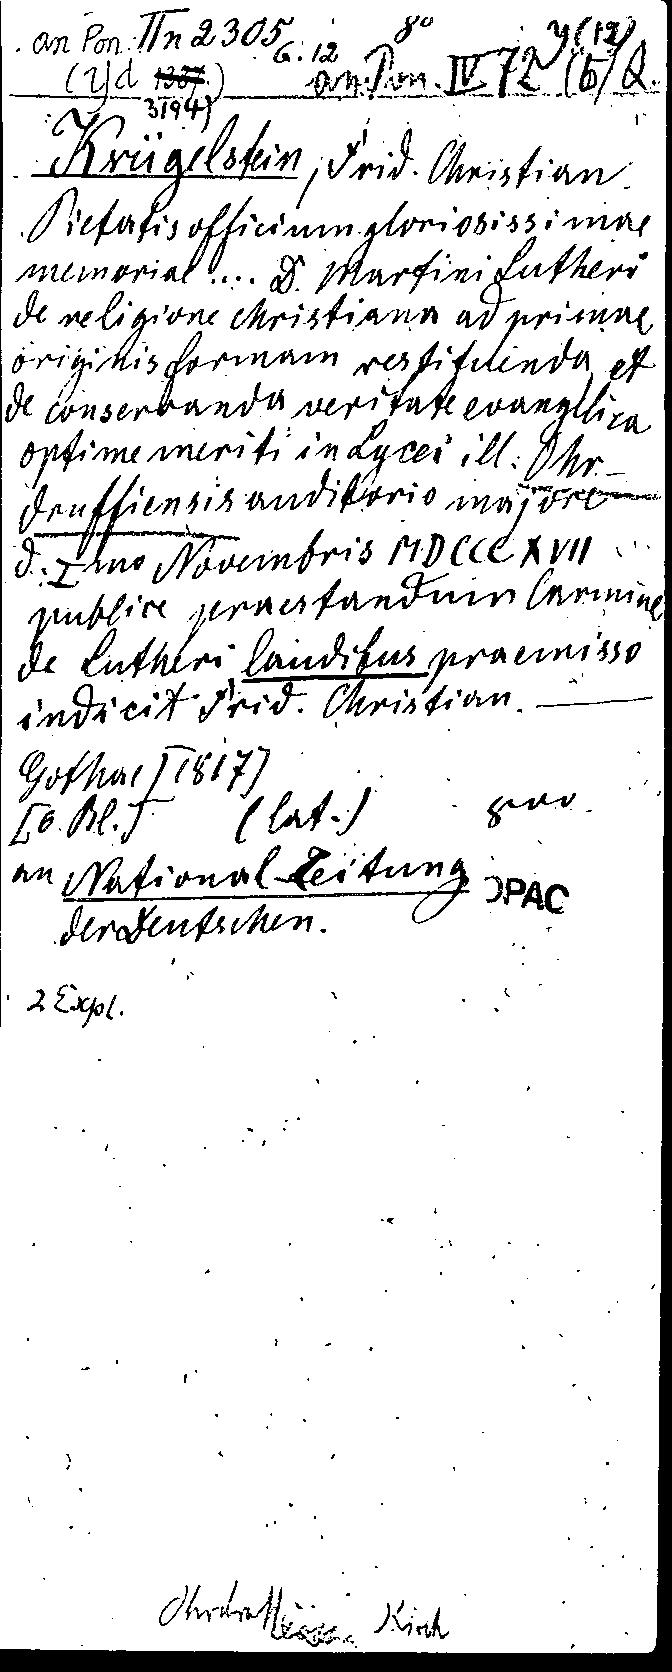 an Pon. IIn 2305 8° y(12)
G. 12
(Yd 1387.) an Pon. IV 72 (6) Q.
3194)
Krügelstein, Frid. Christian.
Pietatis officium gloriosissimae
memoriae .... D. Martini Lutheri
de religione christiana ad primae
originis formam restituenda et
de conservanda veritate evangelica
optime meriti in Lycei ill. Ohr-
druffiensis auditorio majore
d. I mo Novembris MDCCCXVII ...
publice praestandum Carmine
de Lutheri laudibus praemisso
indicit Frid. Christian. —
Gothae [1817]
[6 Bl.] (lat.)
an National-Zeitung OPAC
der Deutschen.
2 Expl.
Ohrdruff Kirch